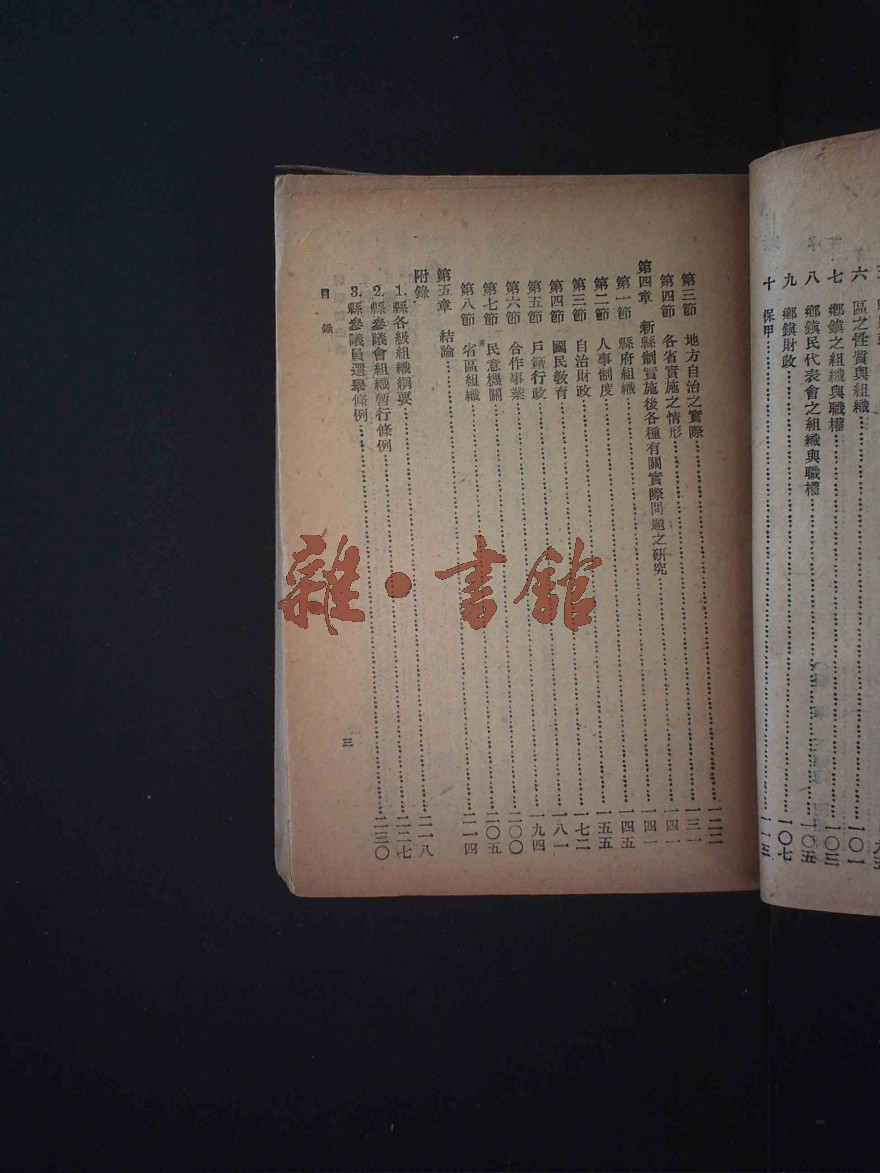 六 區之性質與組織……一〇一
七 鄉鎮之組織與職權……一〇三
八 鄉鎮民代表會之組織與職權……一〇五
九 鄉鎮財政……一〇七
十 保甲……一一三
第三節 地方自治之實際……一二二
第四節 各省實施之情形……一三一
第四章 新縣制實施後各種有關實際問題之研究……一四一
第一節 縣府組織……一四一
第二節 人事制度……一四五
第三節 自治財政……一五五
第四節 國民教育……一七二
第五節 戶籍行政……一八一
第六節 合作事業……一九四
第七節 民意機關……二〇〇
第八節 省區組織……二〇五
第五章 結論……二一四
附錄
1.縣各級組織綱要……二一八
2.縣參議會組織暫行條例……二二七
3.縣參議員選舉條例……二三〇
目錄
三
雜·書館